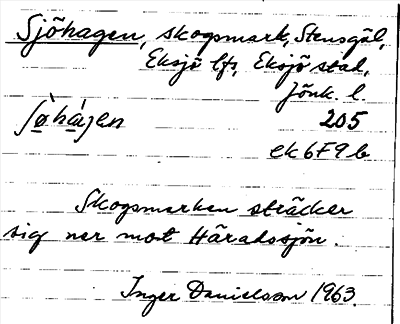 Sjöhagen, skogsmark, Stensgål,
Eksjö lfs, Eksjö stad,
Jönk. l.
205
ek 6F9b
Skogsmarken sträcker
sig ner mot Häradssjön.
Inger Danielsson 1963.